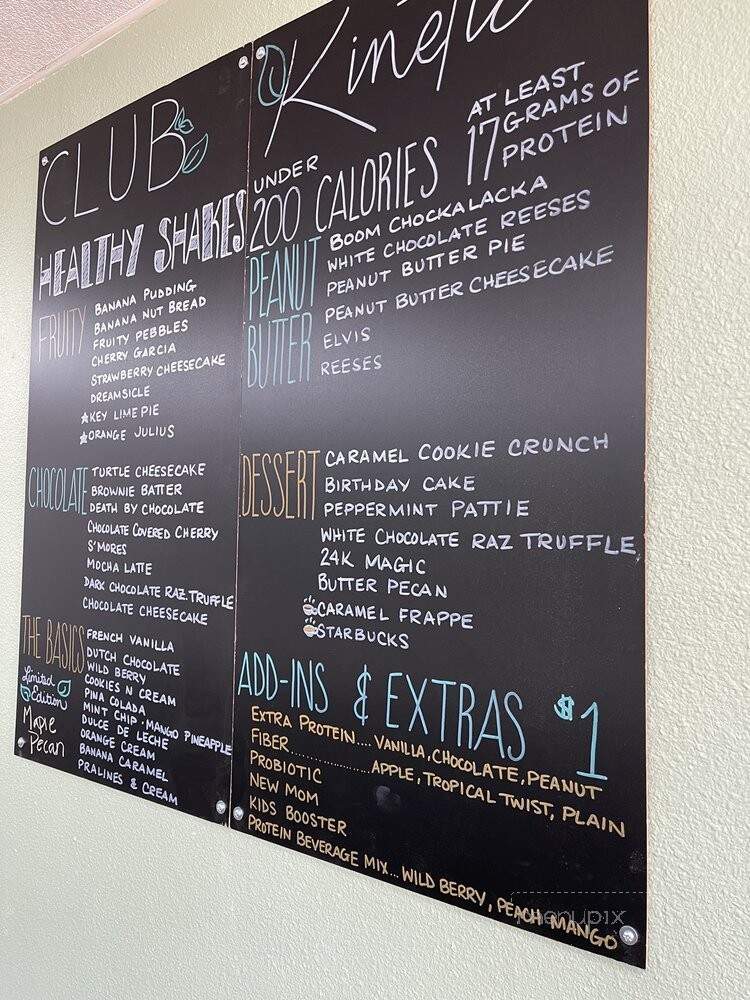 CLUB
HEALTHY SHAKES
FRUITY
BANANA PUDDING
BANANA NUT BREAD
FRUITY PEBBLES
CHERRY GARCIA
STRAWBERRY CHEESECAKE
DREAMSICLE
KEY LIME PIE
ORANGE JULIUS
CHOCOLATE
TURTLE CHEESECAKE
BROWNIE BATTER
DEATH BY CHOCOLATE
CHOCOLATE COVERED CHERRY
S'MORES
MOCHA LATTE
DARK CHOCOLATE RAZ. TRUFFLE
CHOCOLATE CHEESECAKE
THE BASICS
FRENCH VANILLA
DUTCH CHOCOLATE
WILD BERRY
COOKIES N CREAM
PINA COLADA
MINT CHIP · MANGO PINEAPPLE
DULCE DE LECHE
ORANGE CREAM
BANANA CARAMEL
PRALINES & CREAM
Limited
Edition
Maple
Pecan
Kinetic
UNDER
200 CALORIES
AT LEAST
17 GRAMS OF
PROTEIN
PEANUT
BUTTER
BOOM CHOCKALACKA
WHITE CHOCOLATE REESES
PEANUT BUTTER PIE
PEANUT BUTTER CHEESECAKE
ELVIS
REESES
DESSERT
CARAMEL COOKIE CRUNCH
BIRTHDAY CAKE
PEPPERMINT PATTIE
WHITE CHOCOLATE RAZ TRUFFLE
24K MAGIC
BUTTER PECAN
CARAMEL FRAPPE
STARBUCKS
ADD-INS & EXTRAS $1
EXTRA PROTEIN.... VANILLA, CHOCOLATE, PEANUT
FIBER.................. APPLE, TROPICAL TWIST, PLAIN
PROBIOTIC
NEW MOM
KIDS BOOSTER
PROTEIN BEVERAGE MIX... WILD BERRY, PEACH MANGO
menupix